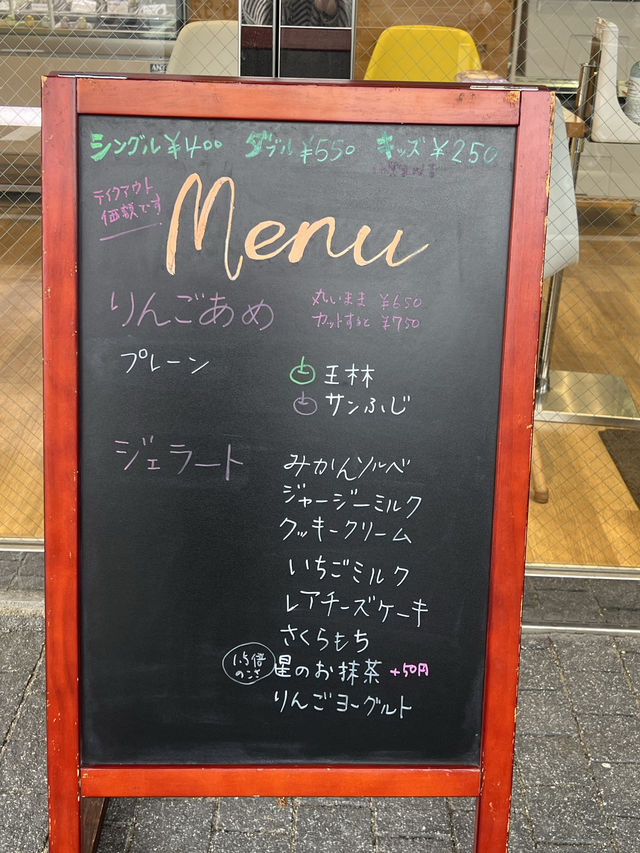 シングル ¥400 ダブル ¥550 キッズ ¥250
テイクアウト
価額です
Menu
りんごあめ
丸いまま ¥650
カットすると ¥750
プレーン
王林
サンふじ
ジェラート
みかんソルベ
ジャージーミルク
クッキークリーム
いちごミルク
レアチーズケーキ
さくらもち
1.5倍
のこさ
星のお抹茶 +50円
りんごヨーグルト